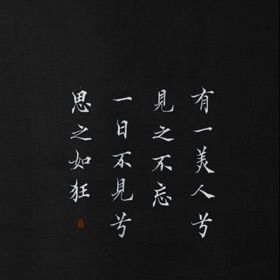 有一美人兮
見之不忘
一日不見兮
思之如狂